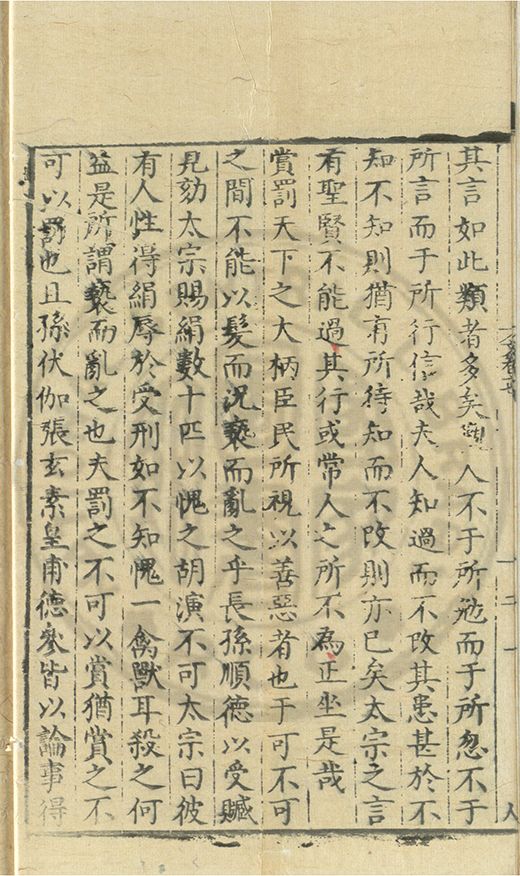 其言如此類者多矣觀人不于所勉而于所忽不于
所言而于所行信哉夫人知過而不改其患甚於不
知不知則猶有所待知而不改則亦已矣太宗之言
有聖賢不能過其行或常人之所不為正坐是哉
賞罰天下之大柄臣民所視以善惡者也于可不可
之間不能以髮而況褻而亂之乎長孫順德以受贓
見劾太宗賜絹數十匹以愧之胡演不可太宗曰彼
有人性得絹辱於受刑如不知愧一禽獸耳殺之何
益是所謂褻而亂之也夫罰之不可以賞猶賞之不
可以罰也且孫伏伽張玄素皇甫德參皆以論事得